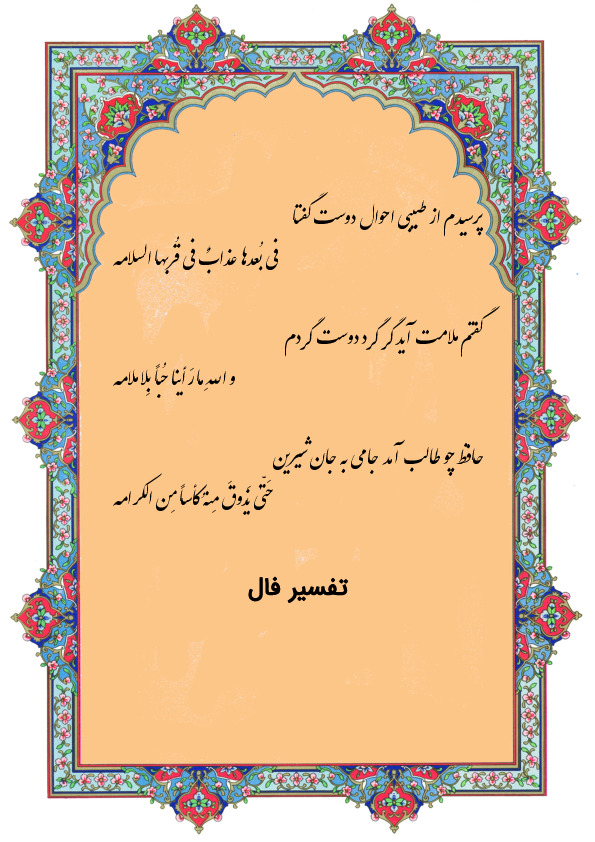 پرسیدم از طبیبی احوال دوست گفتا
فی بُعدها عذابٌ فی قُربها السلامه
گفتم ملامت آید گر گرد دوست گردم
و الله ما رَأینا حُبّاً بِلا ملامه
حافظ چو طالب آمد جامی به جان شیرین
حَتّی یَذُوقَ مِنهُ کأساً مِن الکرامه
تفسیر فال